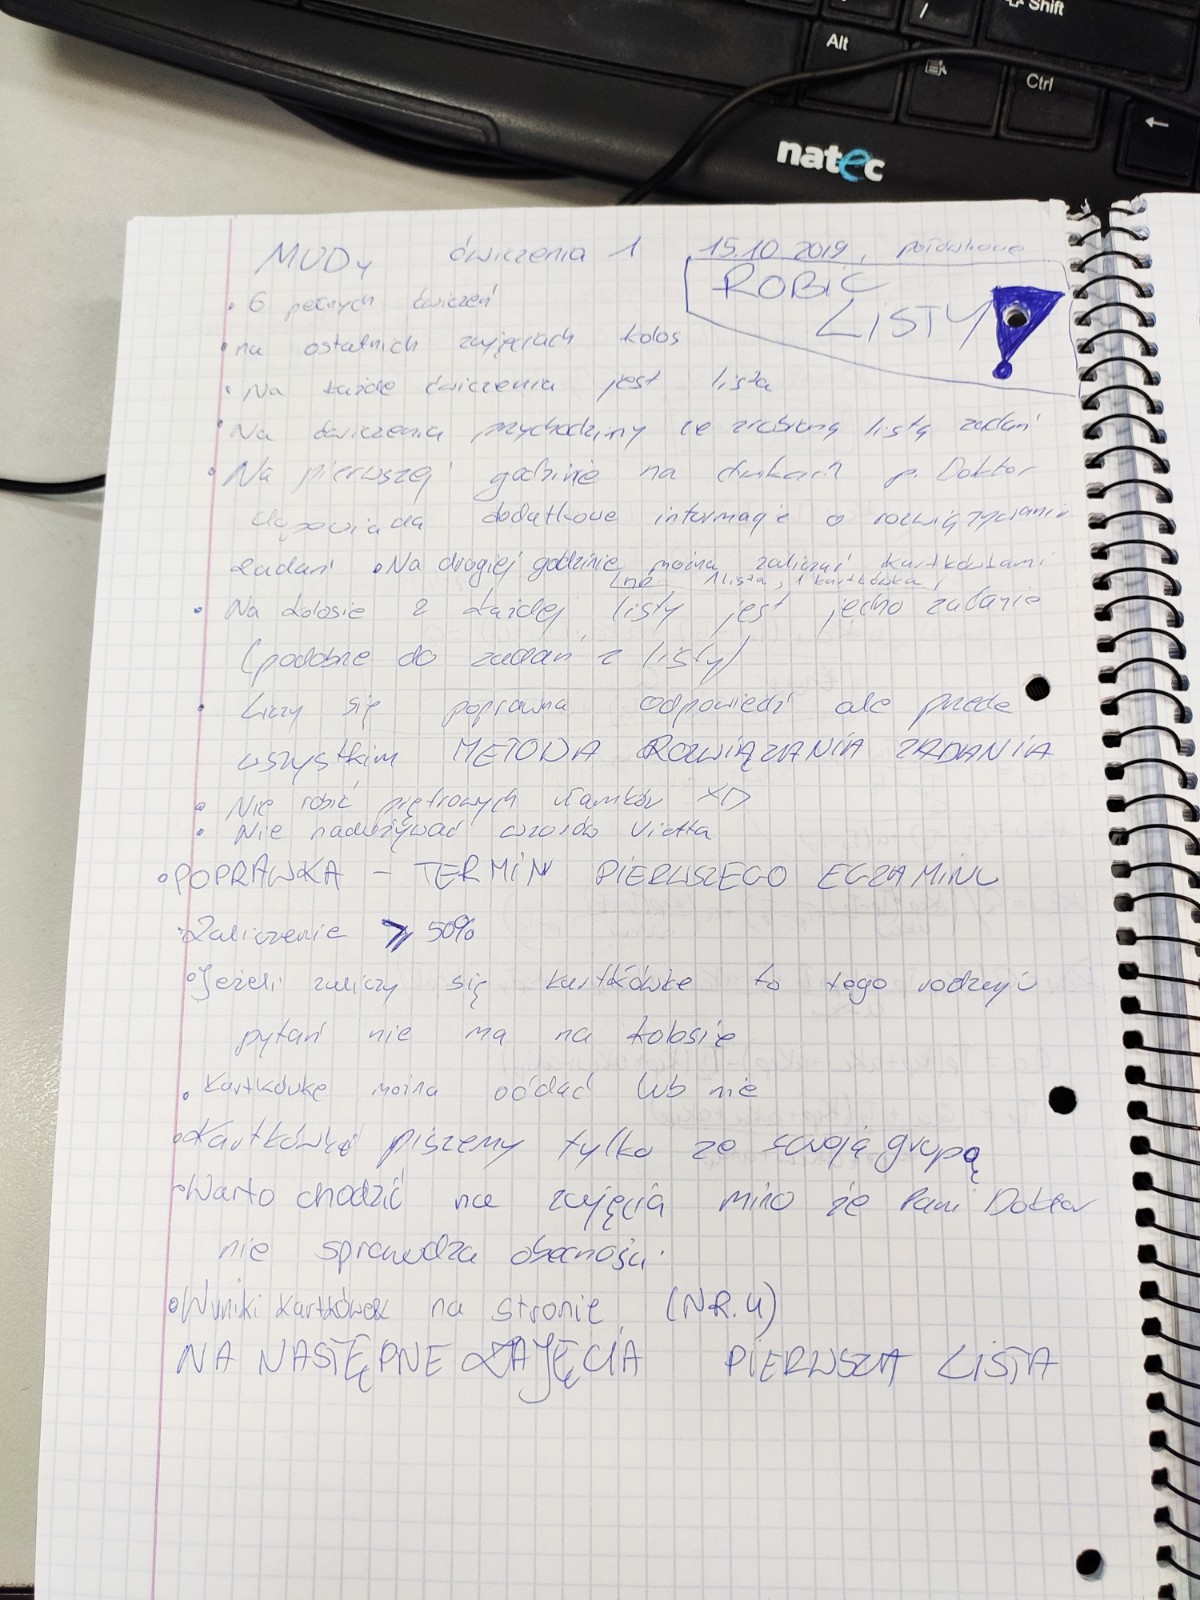 Shift
Alt
/
Ctrl
←
natec
MUDy ćwiczenia 1 15.10 2019,
ROBIĆ
LISTY!
• 6 pełnych ćwiczeń
• na ostatnich zajęciach kolos
• Na każde ćwiczenia jest lista
• Na ćwiczenia przychodzimy ze zrobioną listą zadań
• Na pierwszej godzinie na ćwikach p. Doktor
dopowiada dodatkowe informacje o rozwiązywaniu
zadań • Na drugiej godzinie można zaliczać kartkówkami
1 lista, 1 kartkówka,
• Na kolosie z każdej listy jest jedno zadanie
(podobne do zadań z listy)
• Liczy się poprawna odpowiedź ale przede
wszystkim METODA ROZWIĄZANIA ZADANIA
• Nie robić piętrowych ułamków XD
• Nie nadużywać wzorów Vietta
• POPRAWKA – TERMIN PIERWSZEGO EGZAMINU
• Zaliczenie ⩾ 50%
• Jeżeli zaliczy się kartkówkę to tego rodzaju
pytań nie ma na kolosie
• Kartkówkę można oddać lub nie
• Kartkówki piszemy tylko ze swoją grupą
• Warto chodzić na zajęcia mimo że Pani Doktor
nie sprawdza obecności.
• Wyniki kartkówek na stronie (NR.U)
NA NASTĘPNE ZAJĘCIA PIERWSZA LISTA